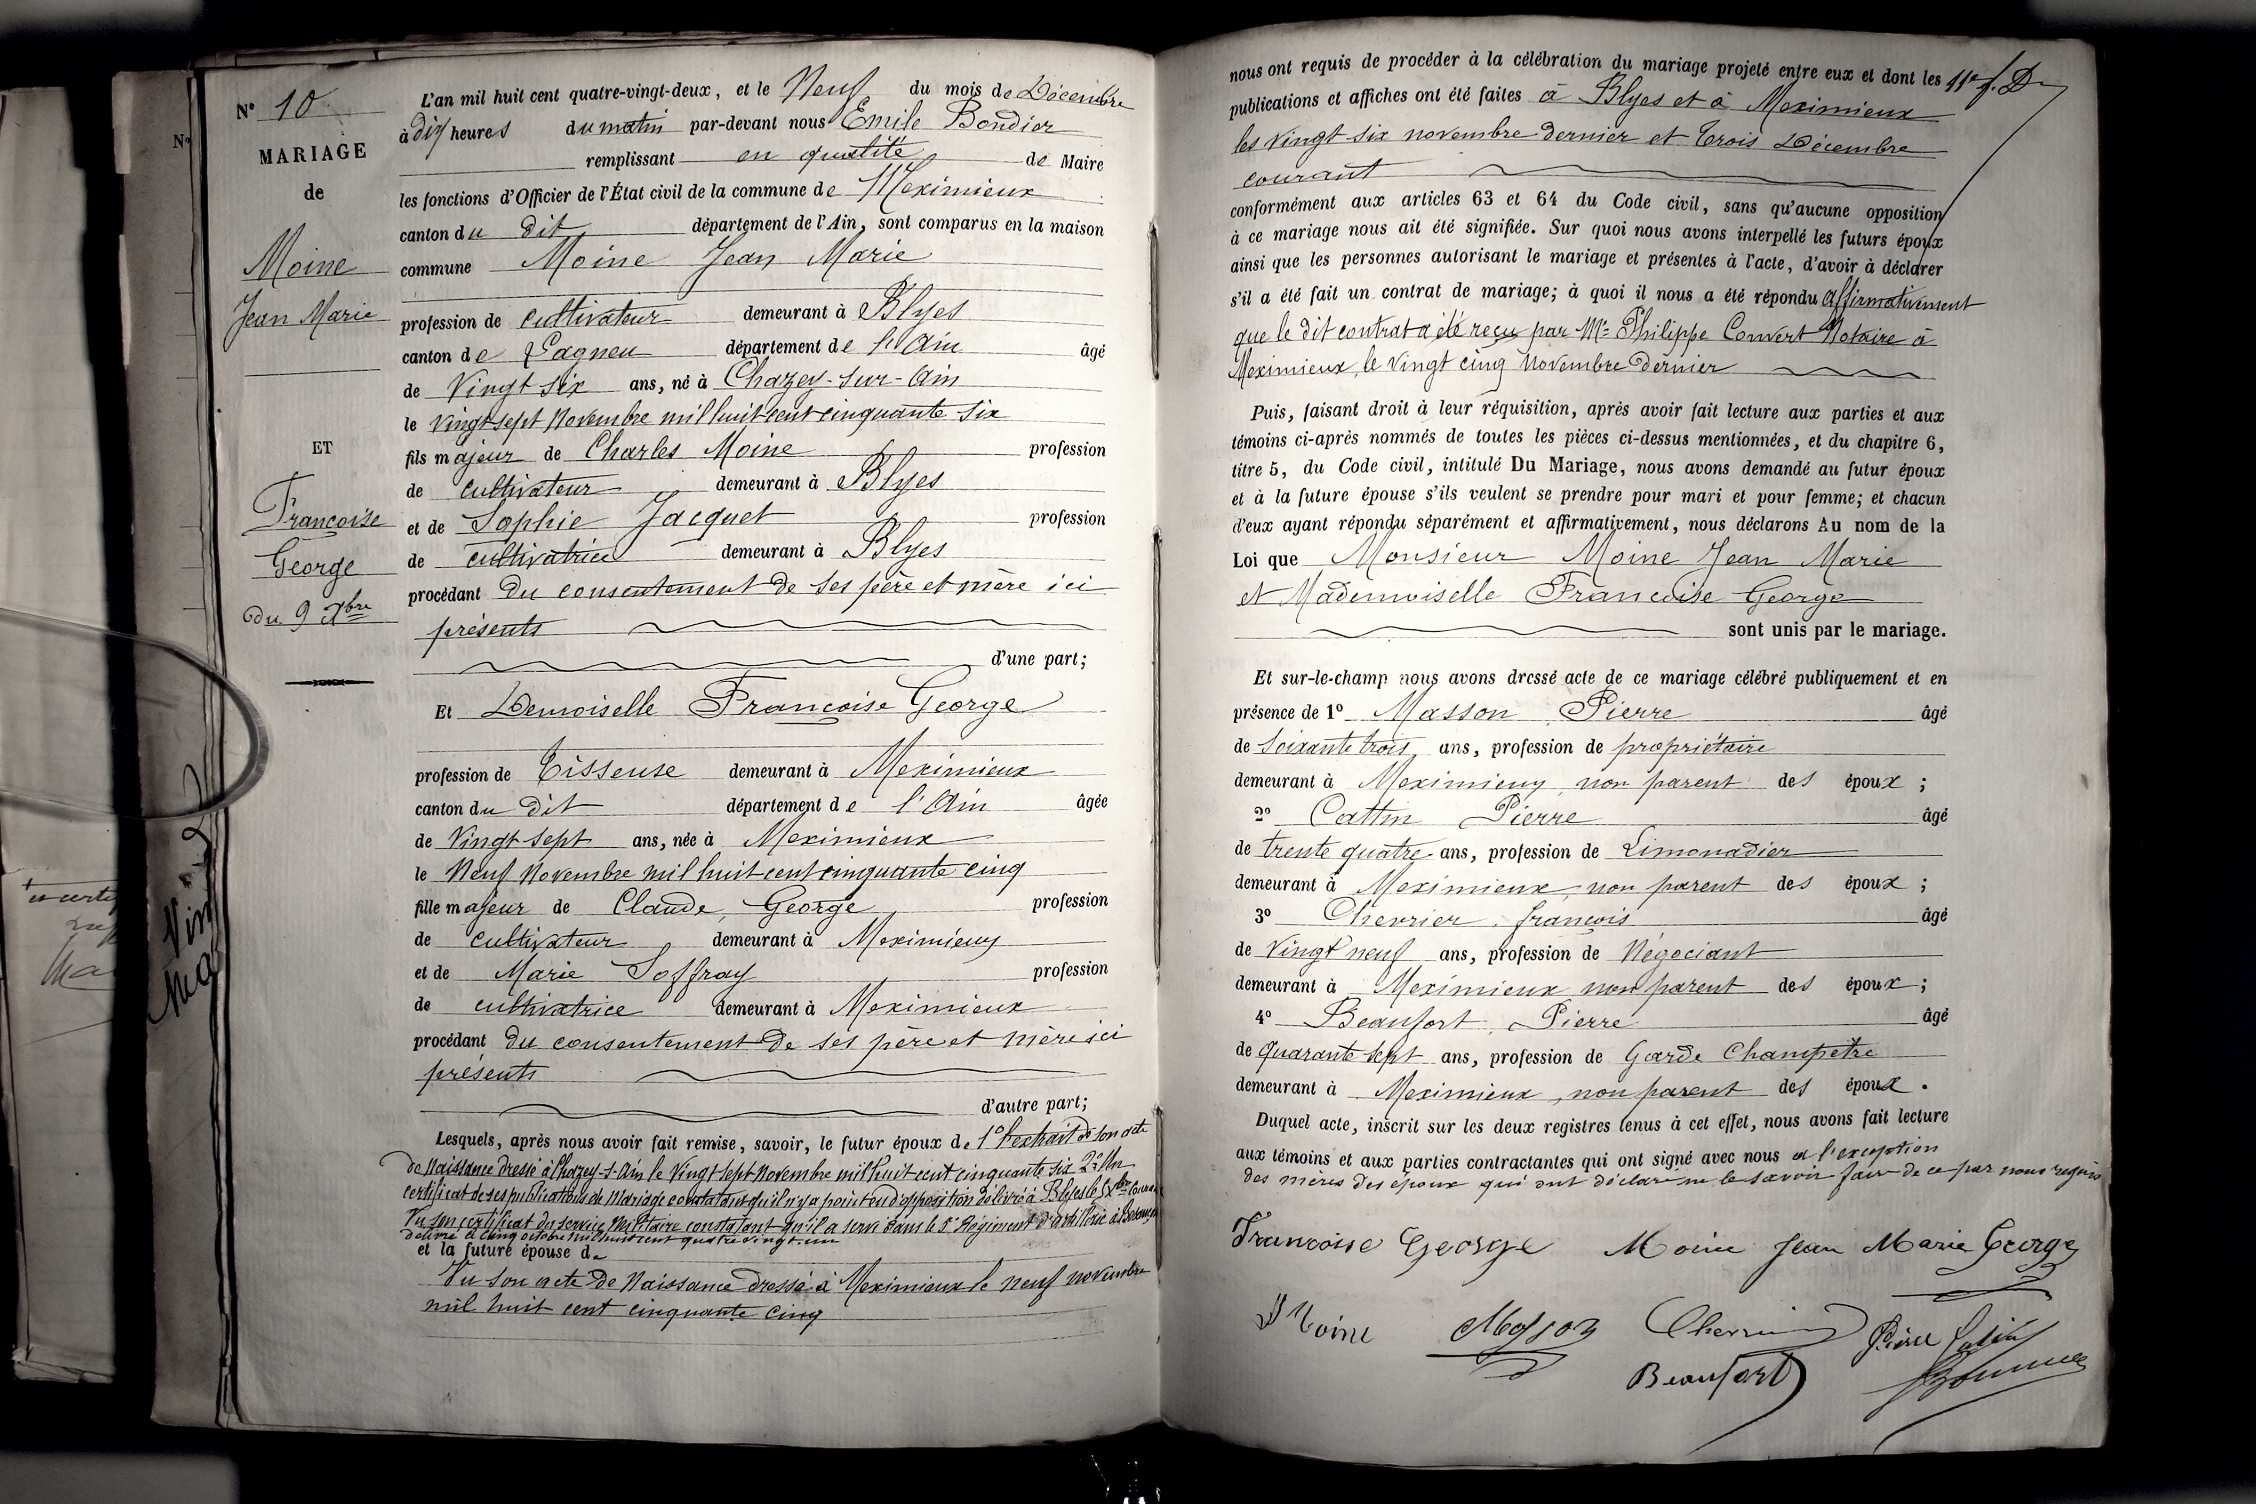 N° 10
MARIAGE
de
Moine
Jean Marie
ET
Françoise
George
du 9 Xbre
L'an mil huit cent quatre-vingt-deux, et le Neuf du mois de Décembre
à dix heures du matin par-devant nous Emile Bondier
remplissant en qualité de Maire
les fonctions d'Officier de l'État civil de la commune de Meximieux
canton du dit département de l'Ain, sont comparus en la maison
commune Moine Jean Marie
profession de cultivateur demeurant à Blyes
canton de Lagneu département de l'Ain âgé
de Vingt six ans, né à Chazey-sur-Ain
le vingt sept Novembre mil huit cent cinquante six
fils majeur de Charles Moine profession
de cultivateur demeurant à Blyes
et de Sophie Jacquet profession
de cultivatrice demeurant à Blyes
procédant du consentement de ses père et mère ici
présents
d'une part;
Et Demoiselle Françoise George
profession de Tisseuse demeurant à Meximieux
canton du dit département de l'Ain âgée
de Vingt sept ans, née à Meximieux
le Neuf Novembre mil huit cent cinquante cinq
fille majeur de Claude George profession
de cultivateur demeurant à Meximieux
et de Marie Soffray profession
de cultivatrice demeurant à Meximieux
procédant du consentement de ses père et mère ici
présents
d'autre part;
Lesquels, après nous avoir fait remise, savoir, le futur époux de 1° l'extrait de son acte
de Naissance dressé à Chazey-s-Ain le Vingt sept Novembre mil huit cent cinquante six 2° Un
certificat de ses publications de Mariage constatant qu'il n'y a point eu d'opposition délivré à Blyes le Xbre Courant
Vu son certificat du service Militaire constatant qu'il a servi dans le 5e Régiment d'artillerie à Besançon
délivré le cinq octobre mil huit cent quatre vingt un
et la future épouse de
Vu son acte de Naissance dressé à Meximieux le neuf novembre
mil huit cent cinquante cinq
nous ont requis de procéder à la célébration du mariage projeté entre eux et dont les
publications et affiches ont été faites à Blyes et à Meximieux
les vingt six novembre dernier et Trois Décembre
courant
conformément aux articles 63 et 64 du Code civil, sans qu'aucune opposition
à ce mariage nous ait été signifiée. Sur quoi nous avons interpellé les futurs époux
ainsi que les personnes autorisant le mariage et présentes à l'acte, d'avoir à déclarer
s'il a été fait un contrat de mariage; à quoi il nous a été répondu Affirmativement
que le dit contrat a été reçu par Me Philippe Convert Notaire à
Meximieux, le Vingt cinq Novembre Dernier
Puis, faisant droit à leur réquisition, après avoir fait lecture aux parties et aux
témoins ci-après nommés de toutes les pièces ci-dessus mentionnées, et du chapitre 6,
titre 5, du Code civil, intitulé Du Mariage, nous avons demandé au futur époux
et à la future épouse s'ils veulent se prendre pour mari et pour femme; et chacun
d'eux ayant répondu séparément et affirmativement, nous déclarons Au nom de la
Loi que Monsieur Moine Jean Marie
et Mademoiselle Françoise George
sont unis par le mariage.
Et sur-le-champ nous avons dressé acte de ce mariage célébré publiquement et en
présence de 1° Masson Pierre âgé
de Soixante trois ans, profession de propriétaire
demeurant à Meximieux, non parent des époux ;
2° Cattin Pierre âgé
de trente quatre ans, profession de Limonadier
demeurant à Meximieux, non parent des époux ;
3° Chevrier françois âgé
de Vingt neuf ans, profession de Négociant
demeurant à Meximieux non parent des époux ;
4° Beaufort, Pierre âgé
de quarante sept ans, profession de Garde Champêtre
demeurant à Meximieux, non parent des époux.
Duquel acte, inscrit sur les deux registres tenus à cet effet, nous avons fait lecture
aux témoins et aux parties contractantes qui ont signé avec nous à l'exception
des mères des époux qui ont déclaré ne le savoir faire de ce par nous requis
Francoise George Moine Jean Marie George
Moine Masson Chevrier Pierre Catin
Beaufort